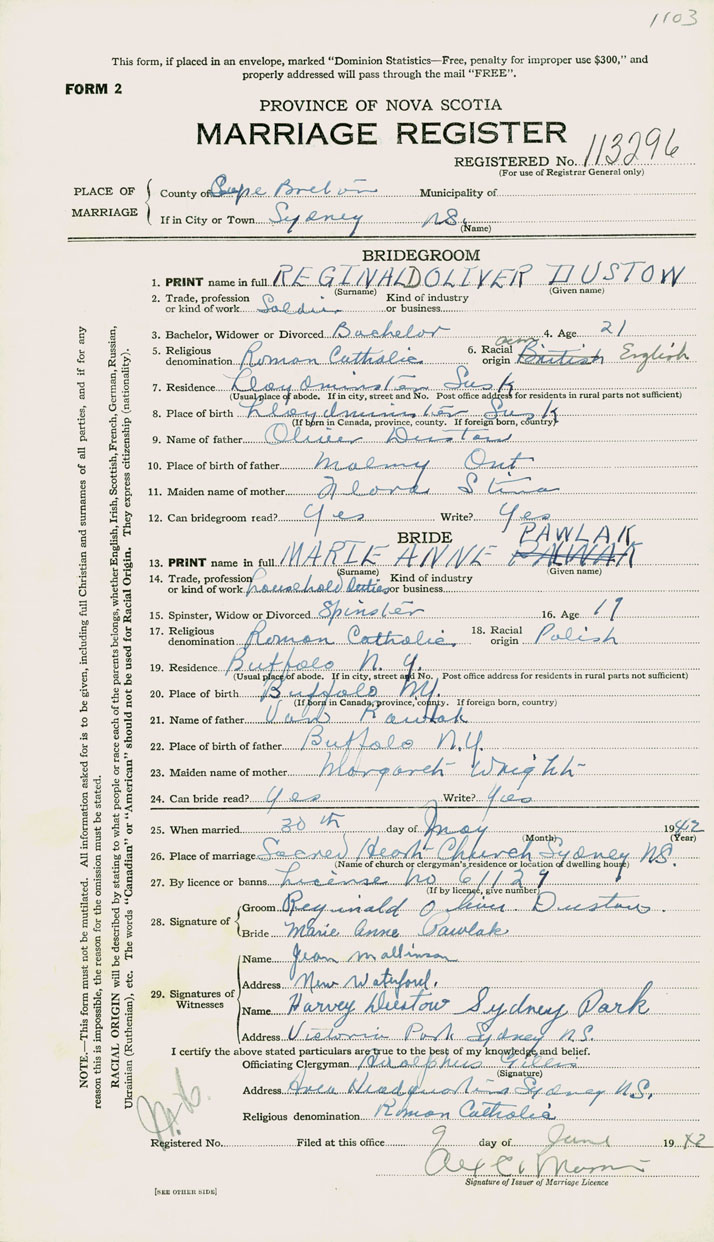 1103
This form, if placed in an envelope, marked "Dominion Statistics—Free, penalty for improper use $300," and
properly addressed will pass through the mail "FREE".
FORM 2
PROVINCE OF NOVA SCOTIA
MARRIAGE REGISTER
REGISTERED No. 113296
(For use of Registrar General only)
PLACE OF MARRIAGE
County of Cape Breton Municipality of
If in City or Town Sydney N.S.
(Name)
BRIDEGROOM
1. PRINT name in full REGINALD OLIVER DUSTOW
(Surname) (Given name)
2. Trade, profession or kind of work Soldier Kind of industry or business
3. Bachelor, Widower or Divorced Bachelor 4. Age 21
5. Religious denomination Roman Catholic 6. Racial origin British English
7. Residence Lloydminster Sask
(Usual place of abode. If in city, street and No. Post office address for residents in rural parts not sufficient)
8. Place of birth Lloydminster Sask
(If born in Canada, province, county. If foreign born, country)
9. Name of father Oliver Dustow
10. Place of birth of father Ont
11. Maiden name of mother Flora
12. Can bridegroom read? Yes Write? Yes
BRIDE PAWLAK
13. PRINT name in full MARIE ANNE
(Surname) (Given name)
14. Trade, profession or kind of work household duties Kind of industry or business
15. Spinster, Widow or Divorced Spinster 16. Age 19
17. Religious denomination Roman Catholic 18. Racial origin Polish
19. Residence Buffalo N.Y.
(Usual place of abode. If in city, street and No. Post office address for residents in rural parts not sufficient)
20. Place of birth Buffalo N.Y.
(If born in Canada, province, county. If foreign born, country)
21. Name of father Pawlak
22. Place of birth of father Buffalo N.Y.
23. Maiden name of mother Margaret Wright
24. Can bride read? Yes Write? Yes
25. When married 30th day of May 1942
(Month) (Year)
26. Place of marriage Sacred Heart Church Sydney N.S.
(Name of church or clergyman's residence or location of dwelling house)
27. By licence or banns License no 61129
(If by licence, give number)
28. Signature of
Groom Reginald Oliver Dustow.
Bride Marie Anne Pawlak
29. Signatures of Witnesses
Name Jean Mallinson
Address New Waterford.
Name Harvey Dustow Sydney Park
Address Victoria Park Sydney N.S.
I certify the above stated particulars are true to the best of my knowledge and belief.
Officiating Clergyman Gillis
(Signature)
Address Area Headquarters Sydney N.S.
Religious denomination Roman Catholic
Registered No. Filed at this office 9 day of June 1942
Signature of Issuer of Marriage Licence
[SEE OTHER SIDE]
NOTE.—This form must not be mutilated. All information asked for is to be given, including full Christian and surnames of all parties, and if for any
reason this is impossible, the reason for the omission must be stated.
RACIAL ORIGIN will be described by stating to what people or race each of the parents belongs, whether English, Irish, Scottish, French, German, Russian,
Ukrainian (Ruthenian), etc. The words "Canadian" or "American" should not be used for Racial Origin. They express citizenship (nationality).